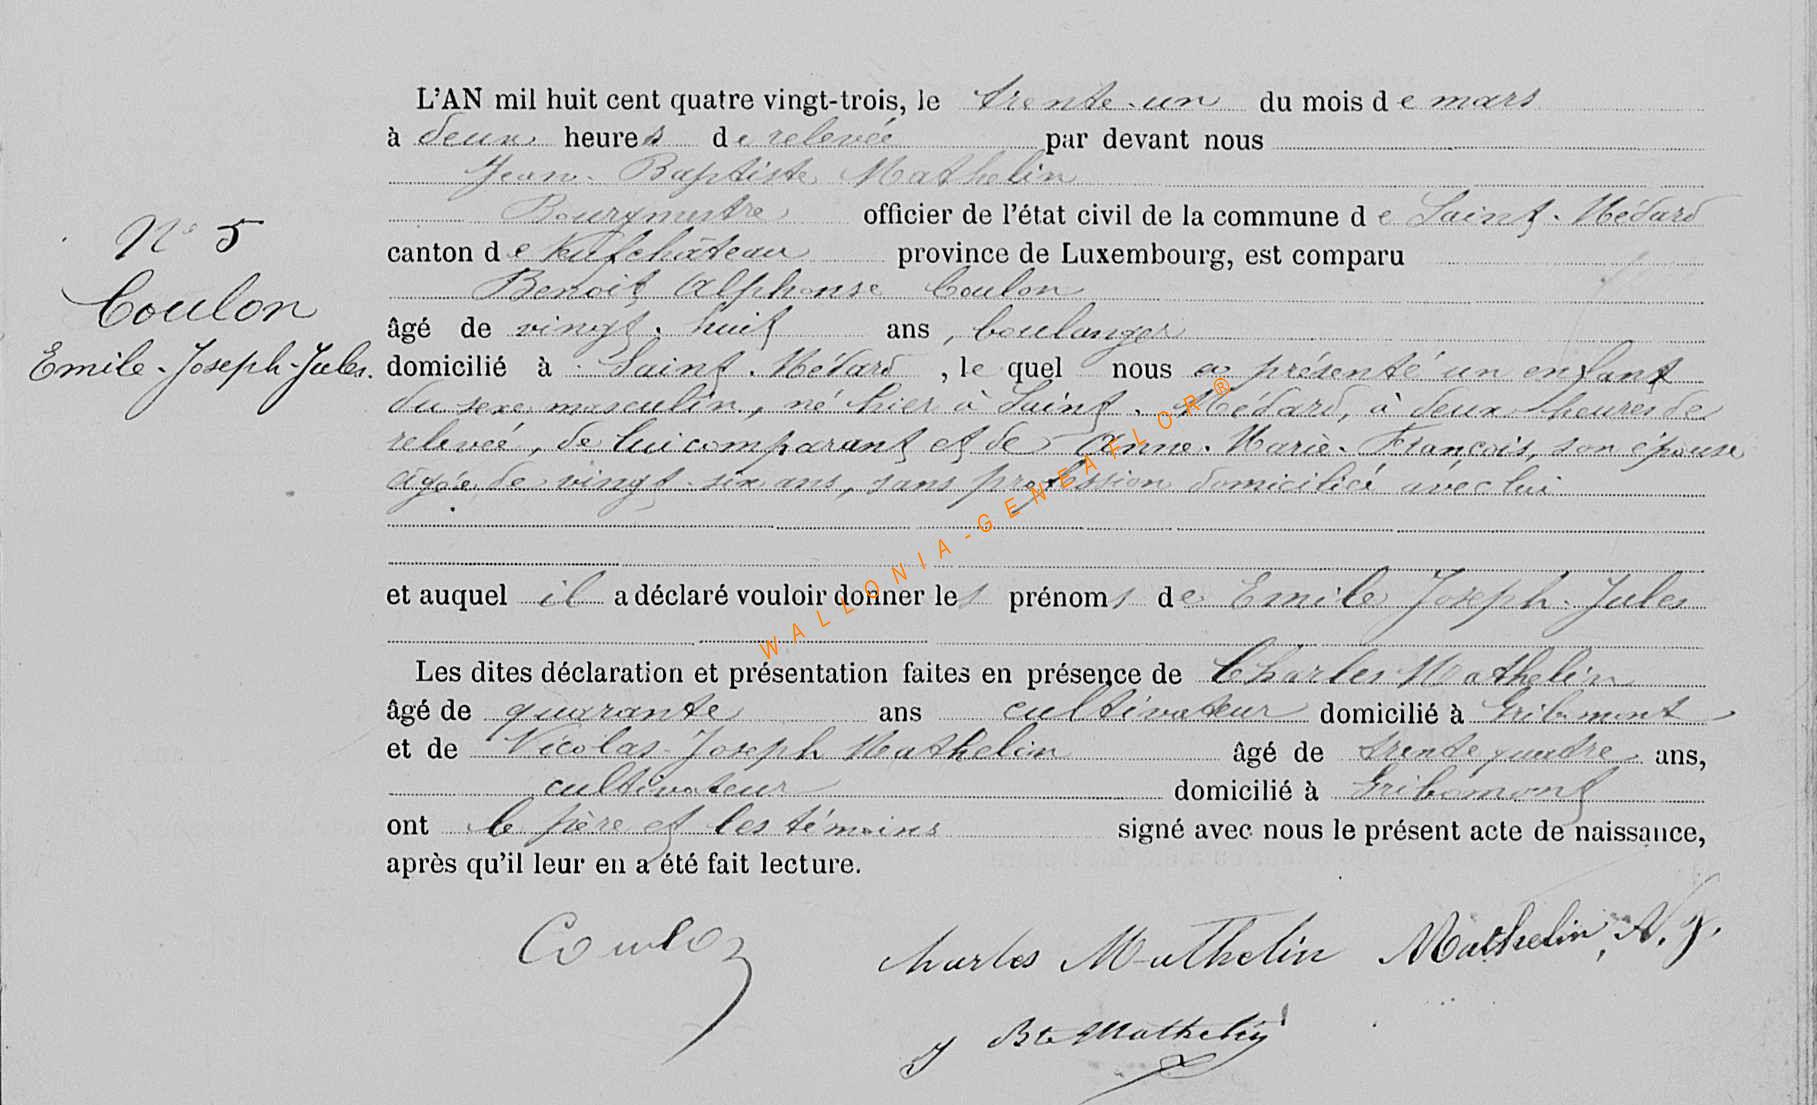 L'AN mil huit cent quatre vingt-trois, le trente-un du mois de mars
à deux heures de relevée par devant nous
Jean-Baptiste Mathelin
Bourgmestre officier de l'état civil de la commune de Saint-Médard
canton de Neufchâteau province de Luxembourg, est comparu
Benoit Alphonse Coulon
âgé de vingt-huit ans, boulanger
domicilié à Saint-Médard, lequel nous a présenté un enfant
du sexe masculin, né hier à Saint-Médard, à deux heures de
relevée, de lui comparant et de Anne-Marie-François, son épouse
âgée de vingt-six ans, sans profession domiciliée avec lui
et auquel il a déclaré vouloir donner les prénoms de Emile Joseph-Jules
Les dites déclaration et présentation faites en présence de Charles Mathelin
âgé de quarante ans cultivateur domicilié à Gribomont
et de Nicolas-Joseph Mathelin âgé de trente quatre ans,
cultivateur domicilié à Gribomont
ont le père et les témoins signé avec nous le présent acte de naissance,
après qu'il leur en a été fait lecture.
N° 5
Coulon
Emile-Joseph-Jules.
Coulon
Charles Mathelin
Mathelin, N. J.
J Bte Mathelin
WALLONIA-GENEAFLOR®